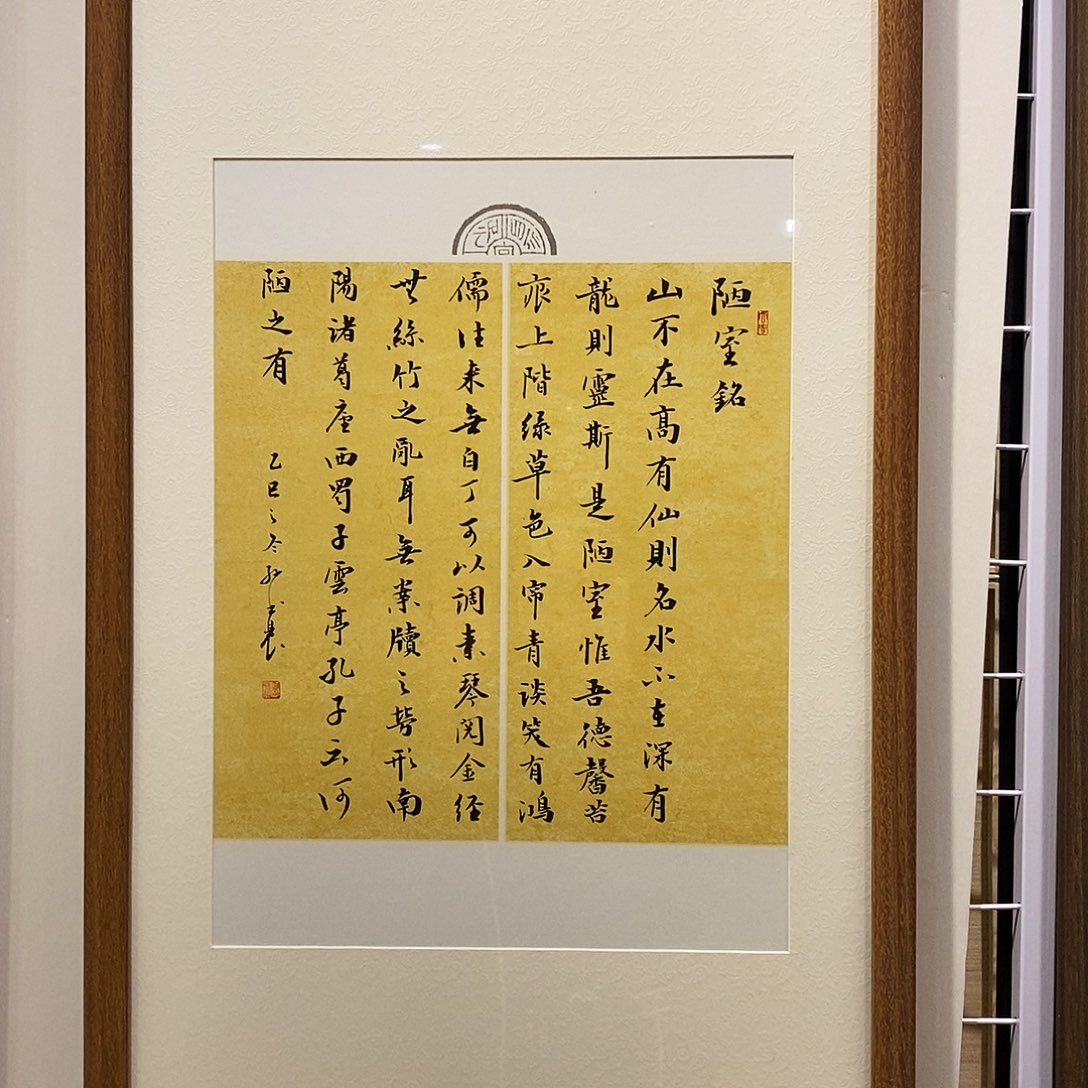 陋室銘
山不在髙有仙則名水不在深有
龍則靈斯是陋室惟吾德馨苔
痕上階綠草色入帘青談笑有鴻
儒往来無白丁可以調素琴閱金經
無絲竹之亂耳無案牘之勞形南
陽諸葛廬西蜀子雲亭孔子云何
陋之有
乙巳之冬